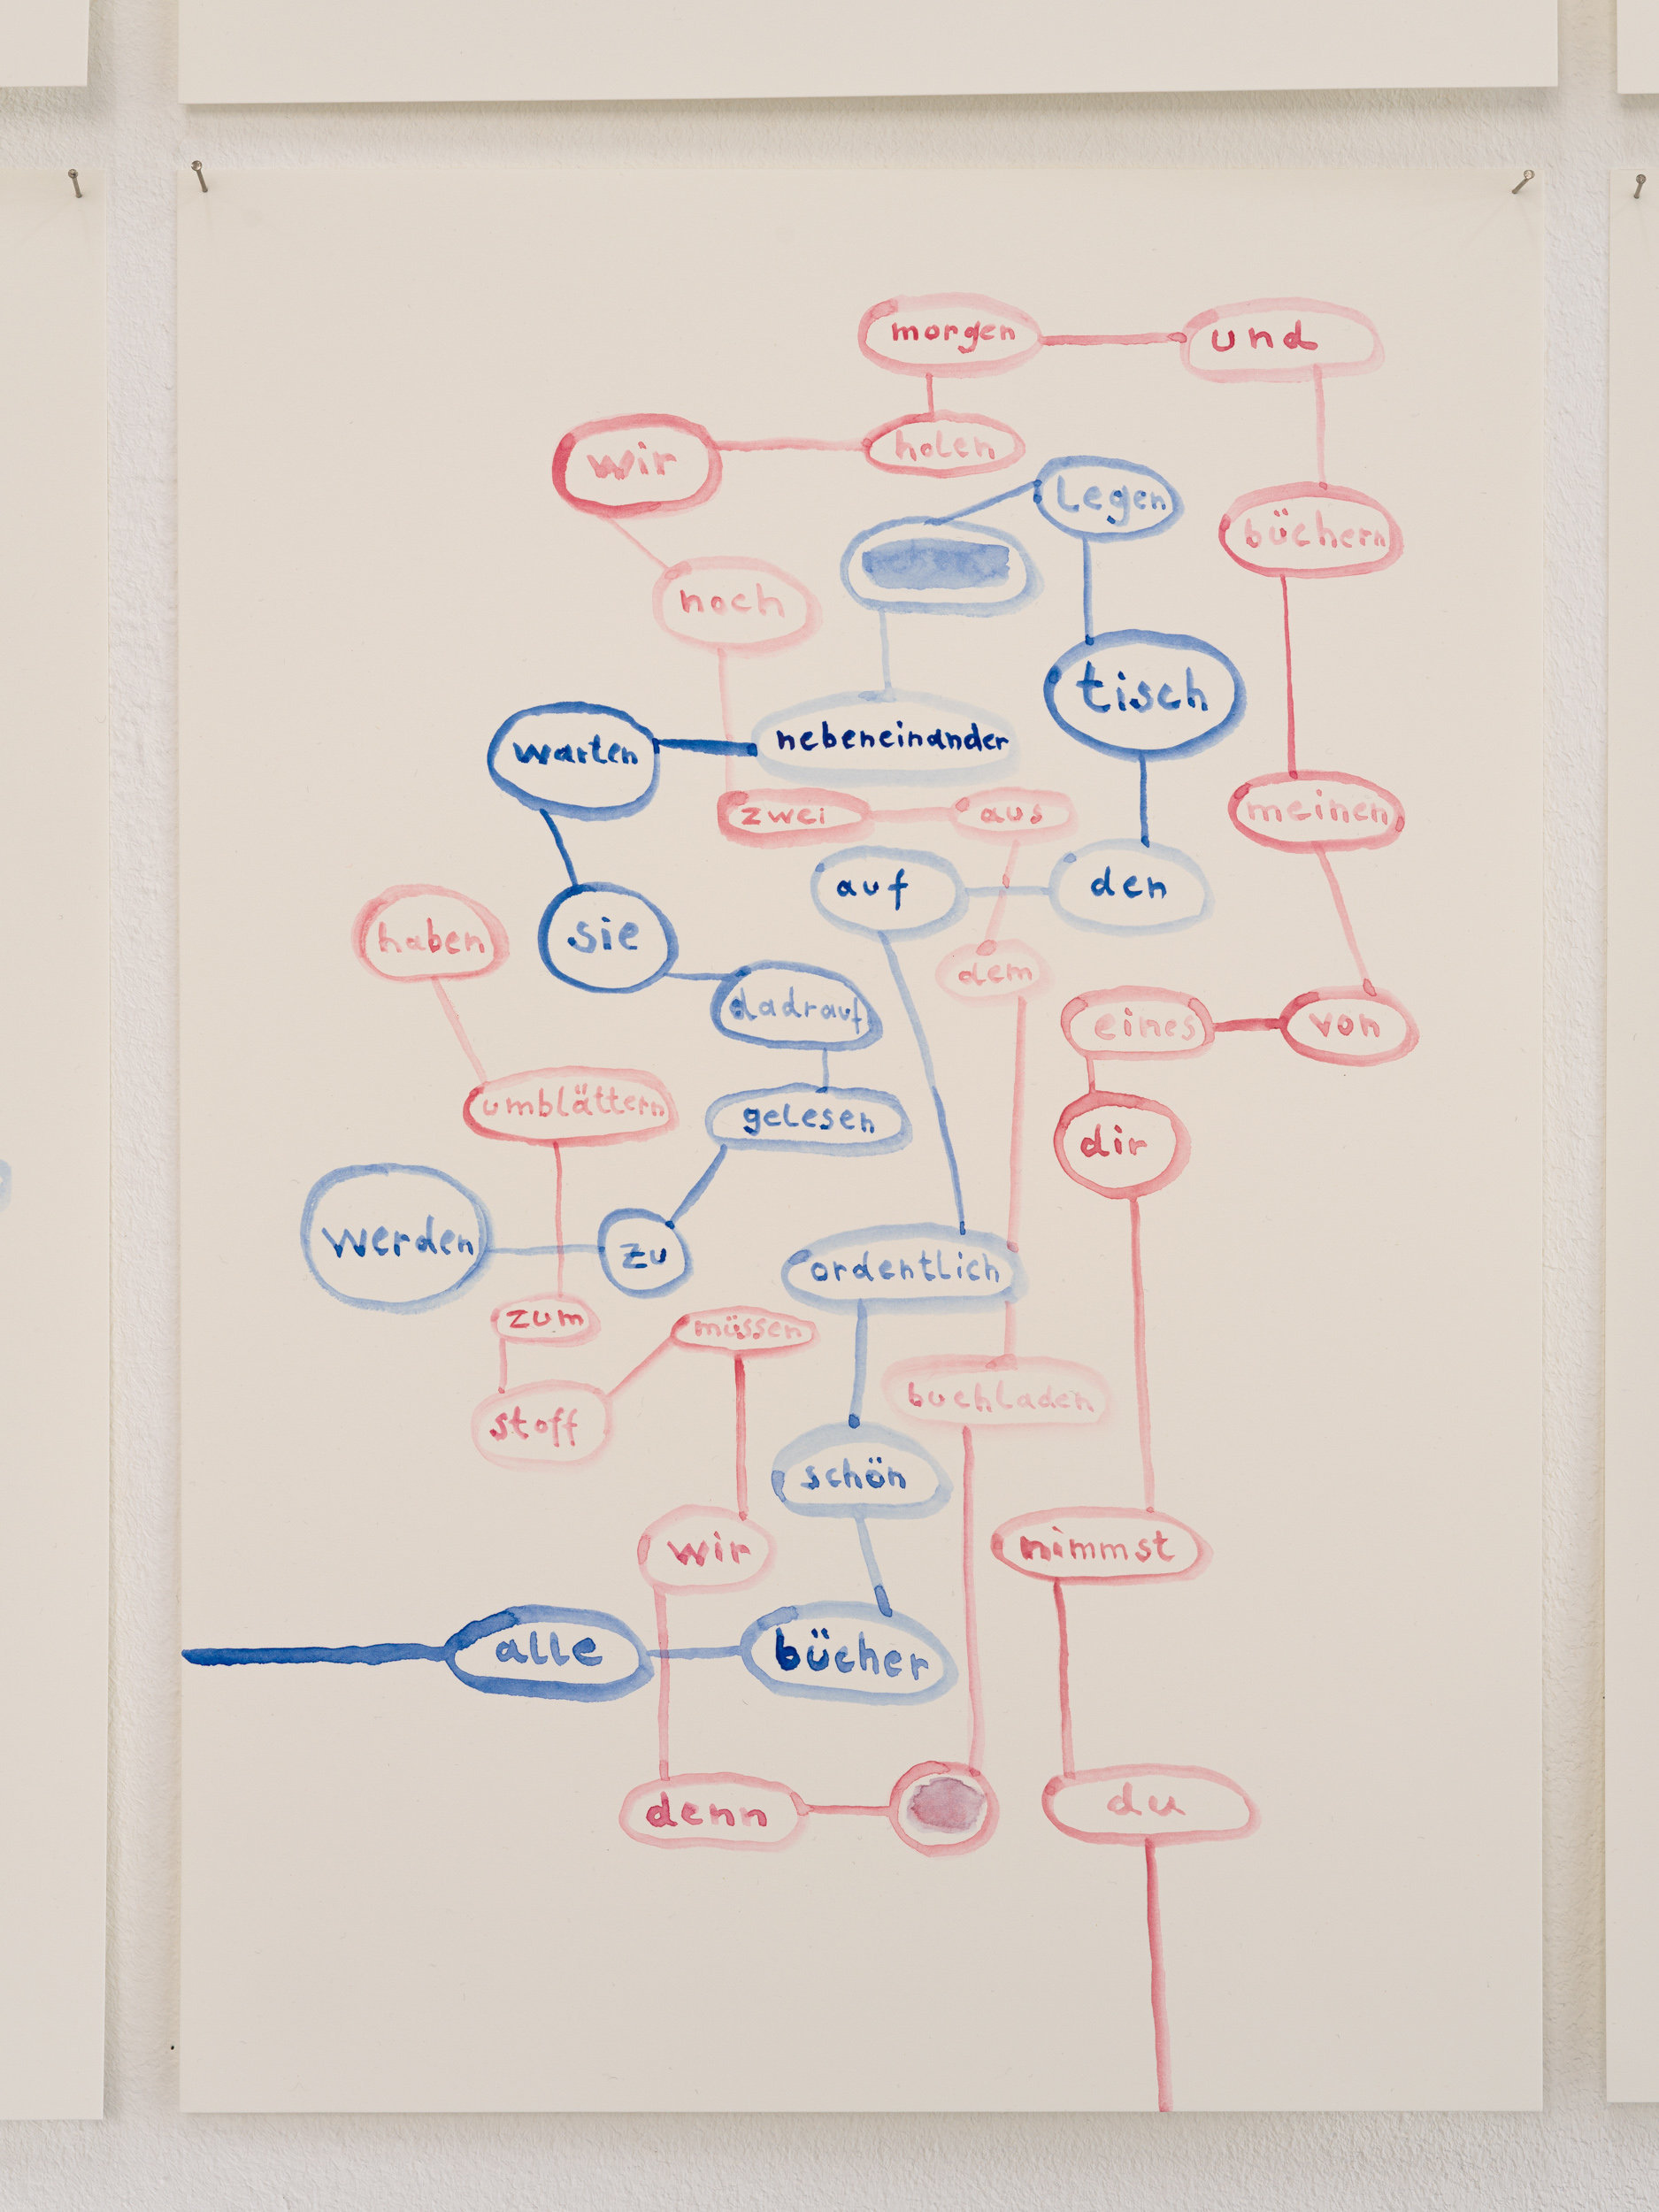 alle
bücher
schön
ordentlich
auf
den
tisch
Legen
nebeneinander
warten
sie
dadrauf
gelesen
zu
werden
du
nimmst
dir
eines
von
meinen
büchern
und
morgen
holen
wir
noch
zwei
aus
dem
buchladen
denn
wir
müssen
stoff
zum
umblättern
haben